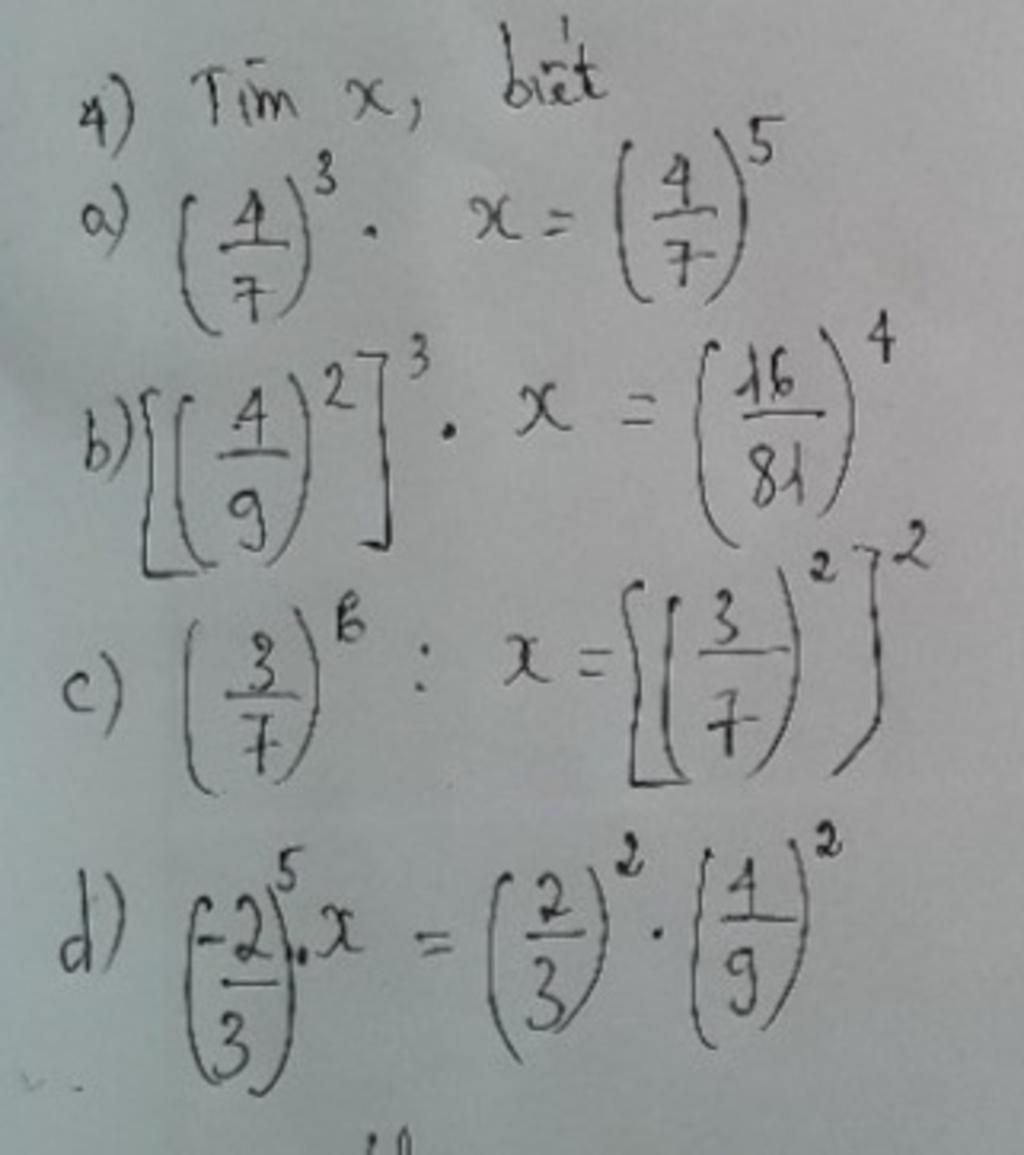 4) Tìm x, biết
a) (4/7)^3 . x = (4/7)^5
b) [(4/9)^2]^3 . x = (16/81)^4
c) (3/7)^6 : x = [(3/7)^2]^2
d) (-2/3)^5 . x = (2/3)^2 . (4/9)^2